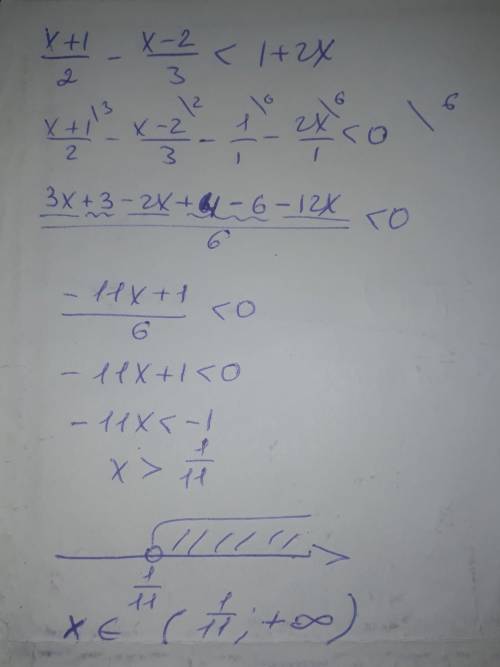 x+1/2 - x-2/3 < 1+2x
x+1\3/2 - x-2\2/3 - 1\6/1 - 2x\6/1 <0 \6
3x+3-2x+4-6-12x/6 <0
-11x+1/6 <0
-11x+1<0
-11x<-1
x > 1/11
1/11
x ∈ (1/11; +∞)